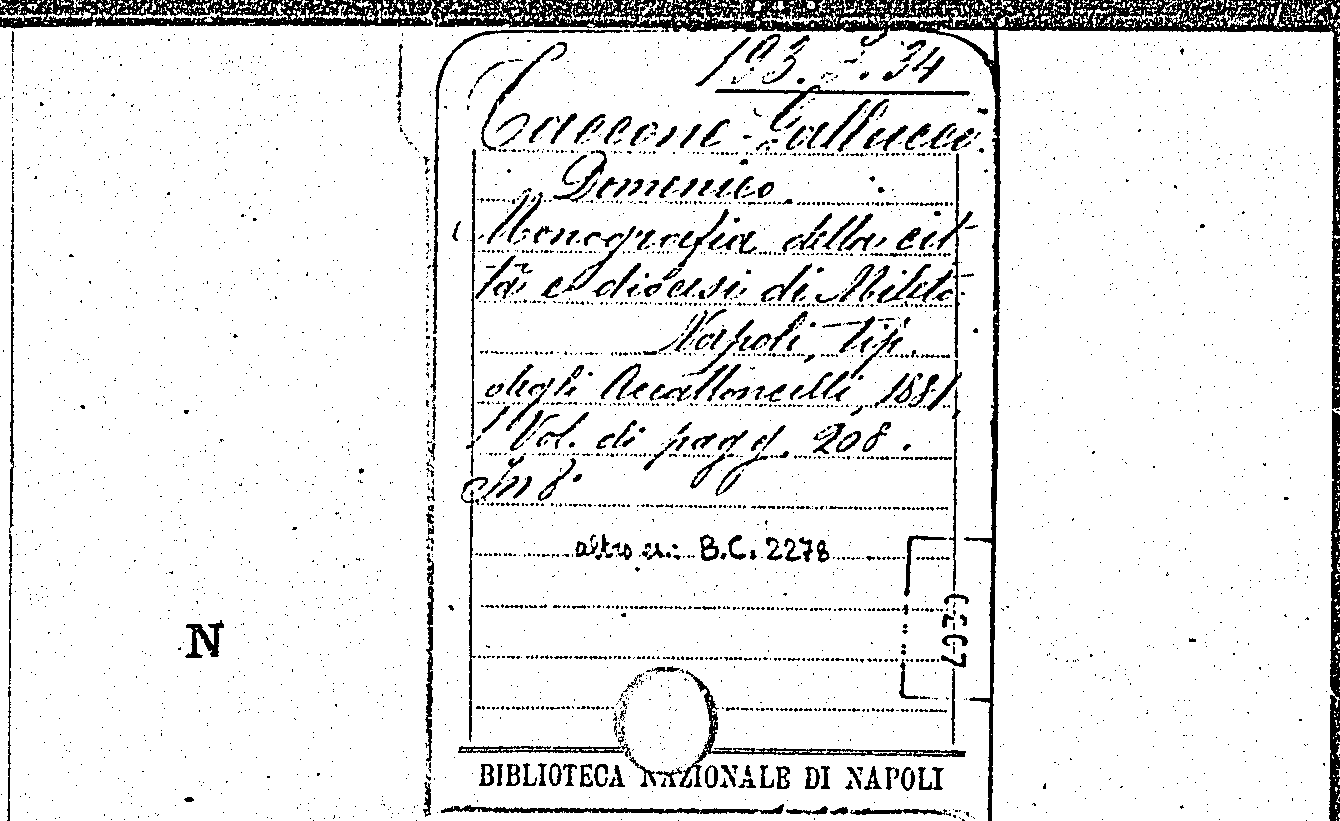 193. J. 34
Taccone-Gallucci
Domenico.
Monografia della cit-
tà e diocesi di Mileto
Napoli, tip.
degli Accattoncelli, 1881,
1 Vol. di pagg. 208.
In 8°
altro es.: B.C. 2278
N
BIBLIOTECA NAZIONALE DI NAPOLI